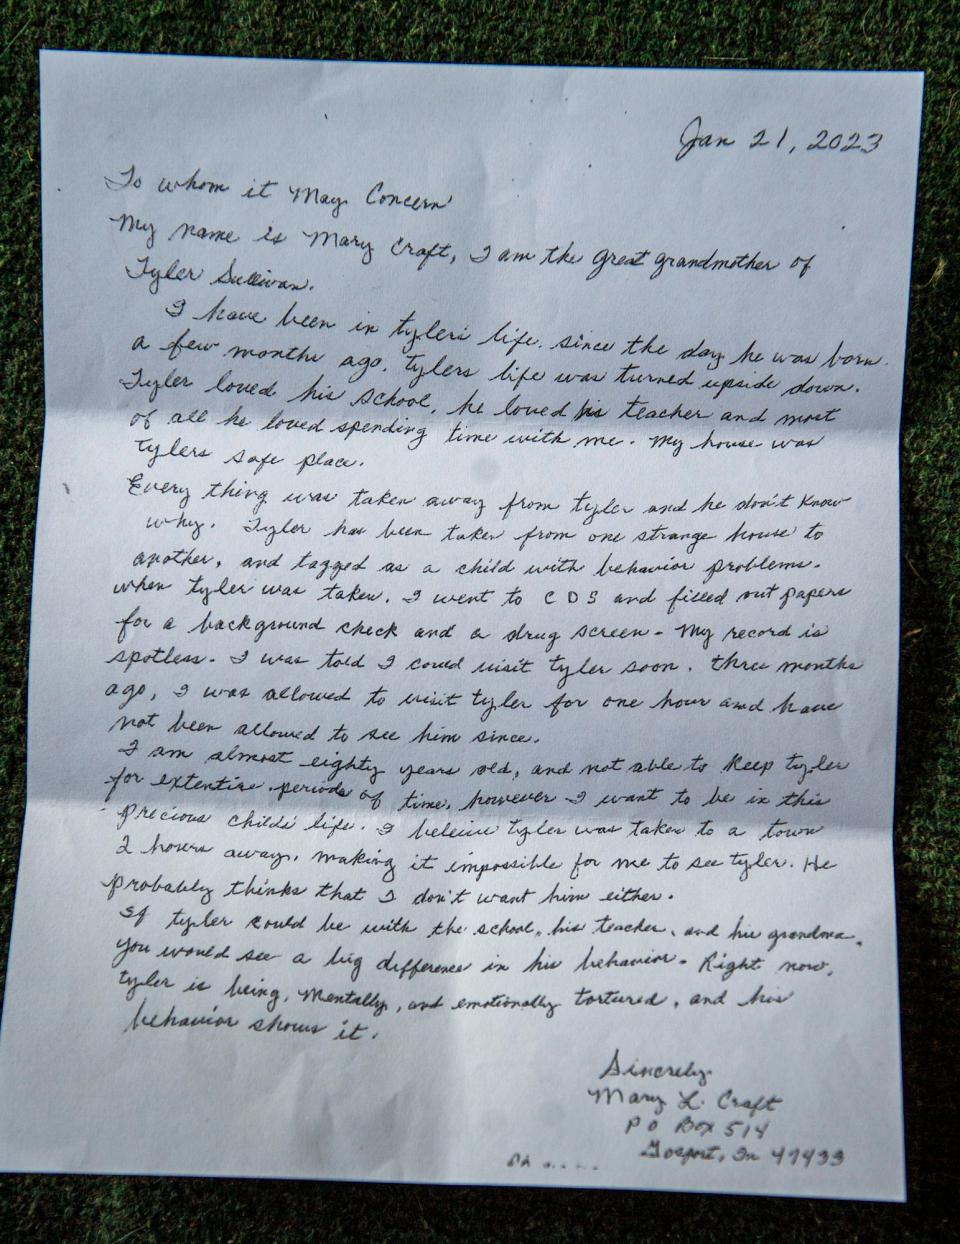 Jan 21, 2023
To whom it May Concern
My name is Mary Craft, I am the great grandmother of
Tyler Sullivan.
I have been in tylers life. since the day he was born.
a few months ago. tylers life was turned upside down.
Tyler loved his school, he loved his teacher and most
of all he loved spending time with me. My house was
tylers safe place.
Every thing was taken away from tyler and he don't know
why. Tyler has been taken from one strange house to
another, and tagged as a child with behavior problems.
when tyler was taken. I went to C D S and filled out papers
for a background check and a drug screen - My record is
spotless. I was told I could visit tyler soon. three months
ago, I was allowed to visit tyler for one hour and have
not been allowed to see him since.
I am almost eighty years old, and not able to keep tyler
for extentive periods of time, however I want to be in this
precious childs life. I beleive tyler was taken to a town
2 hours away, making it impossible for me to see tyler. He
probably thinks that I don't want him either.
If tyler could be with the school, his teacher, and his grandma,
you would see a big difference in his behavior. Right now,
tyler is being, Mentally, and emotionally tortured, and his
behavior shows it.
Sincerely
Mary L. Craft
P O Box 514
Gosport, In 47433